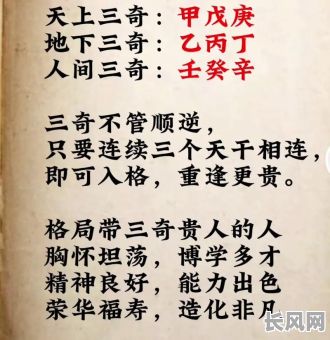 天上三奇：甲戊庚
地下三奇：乙丙丁
人间三奇：壬癸辛
三奇不管顺逆，
只要连续三个天干相连，
即可入格，重逢更贵。
格局带三奇贵人的人
胸怀坦荡，博学多才
精神良好，能力出色
荣华福寿，造化非凡
长风网